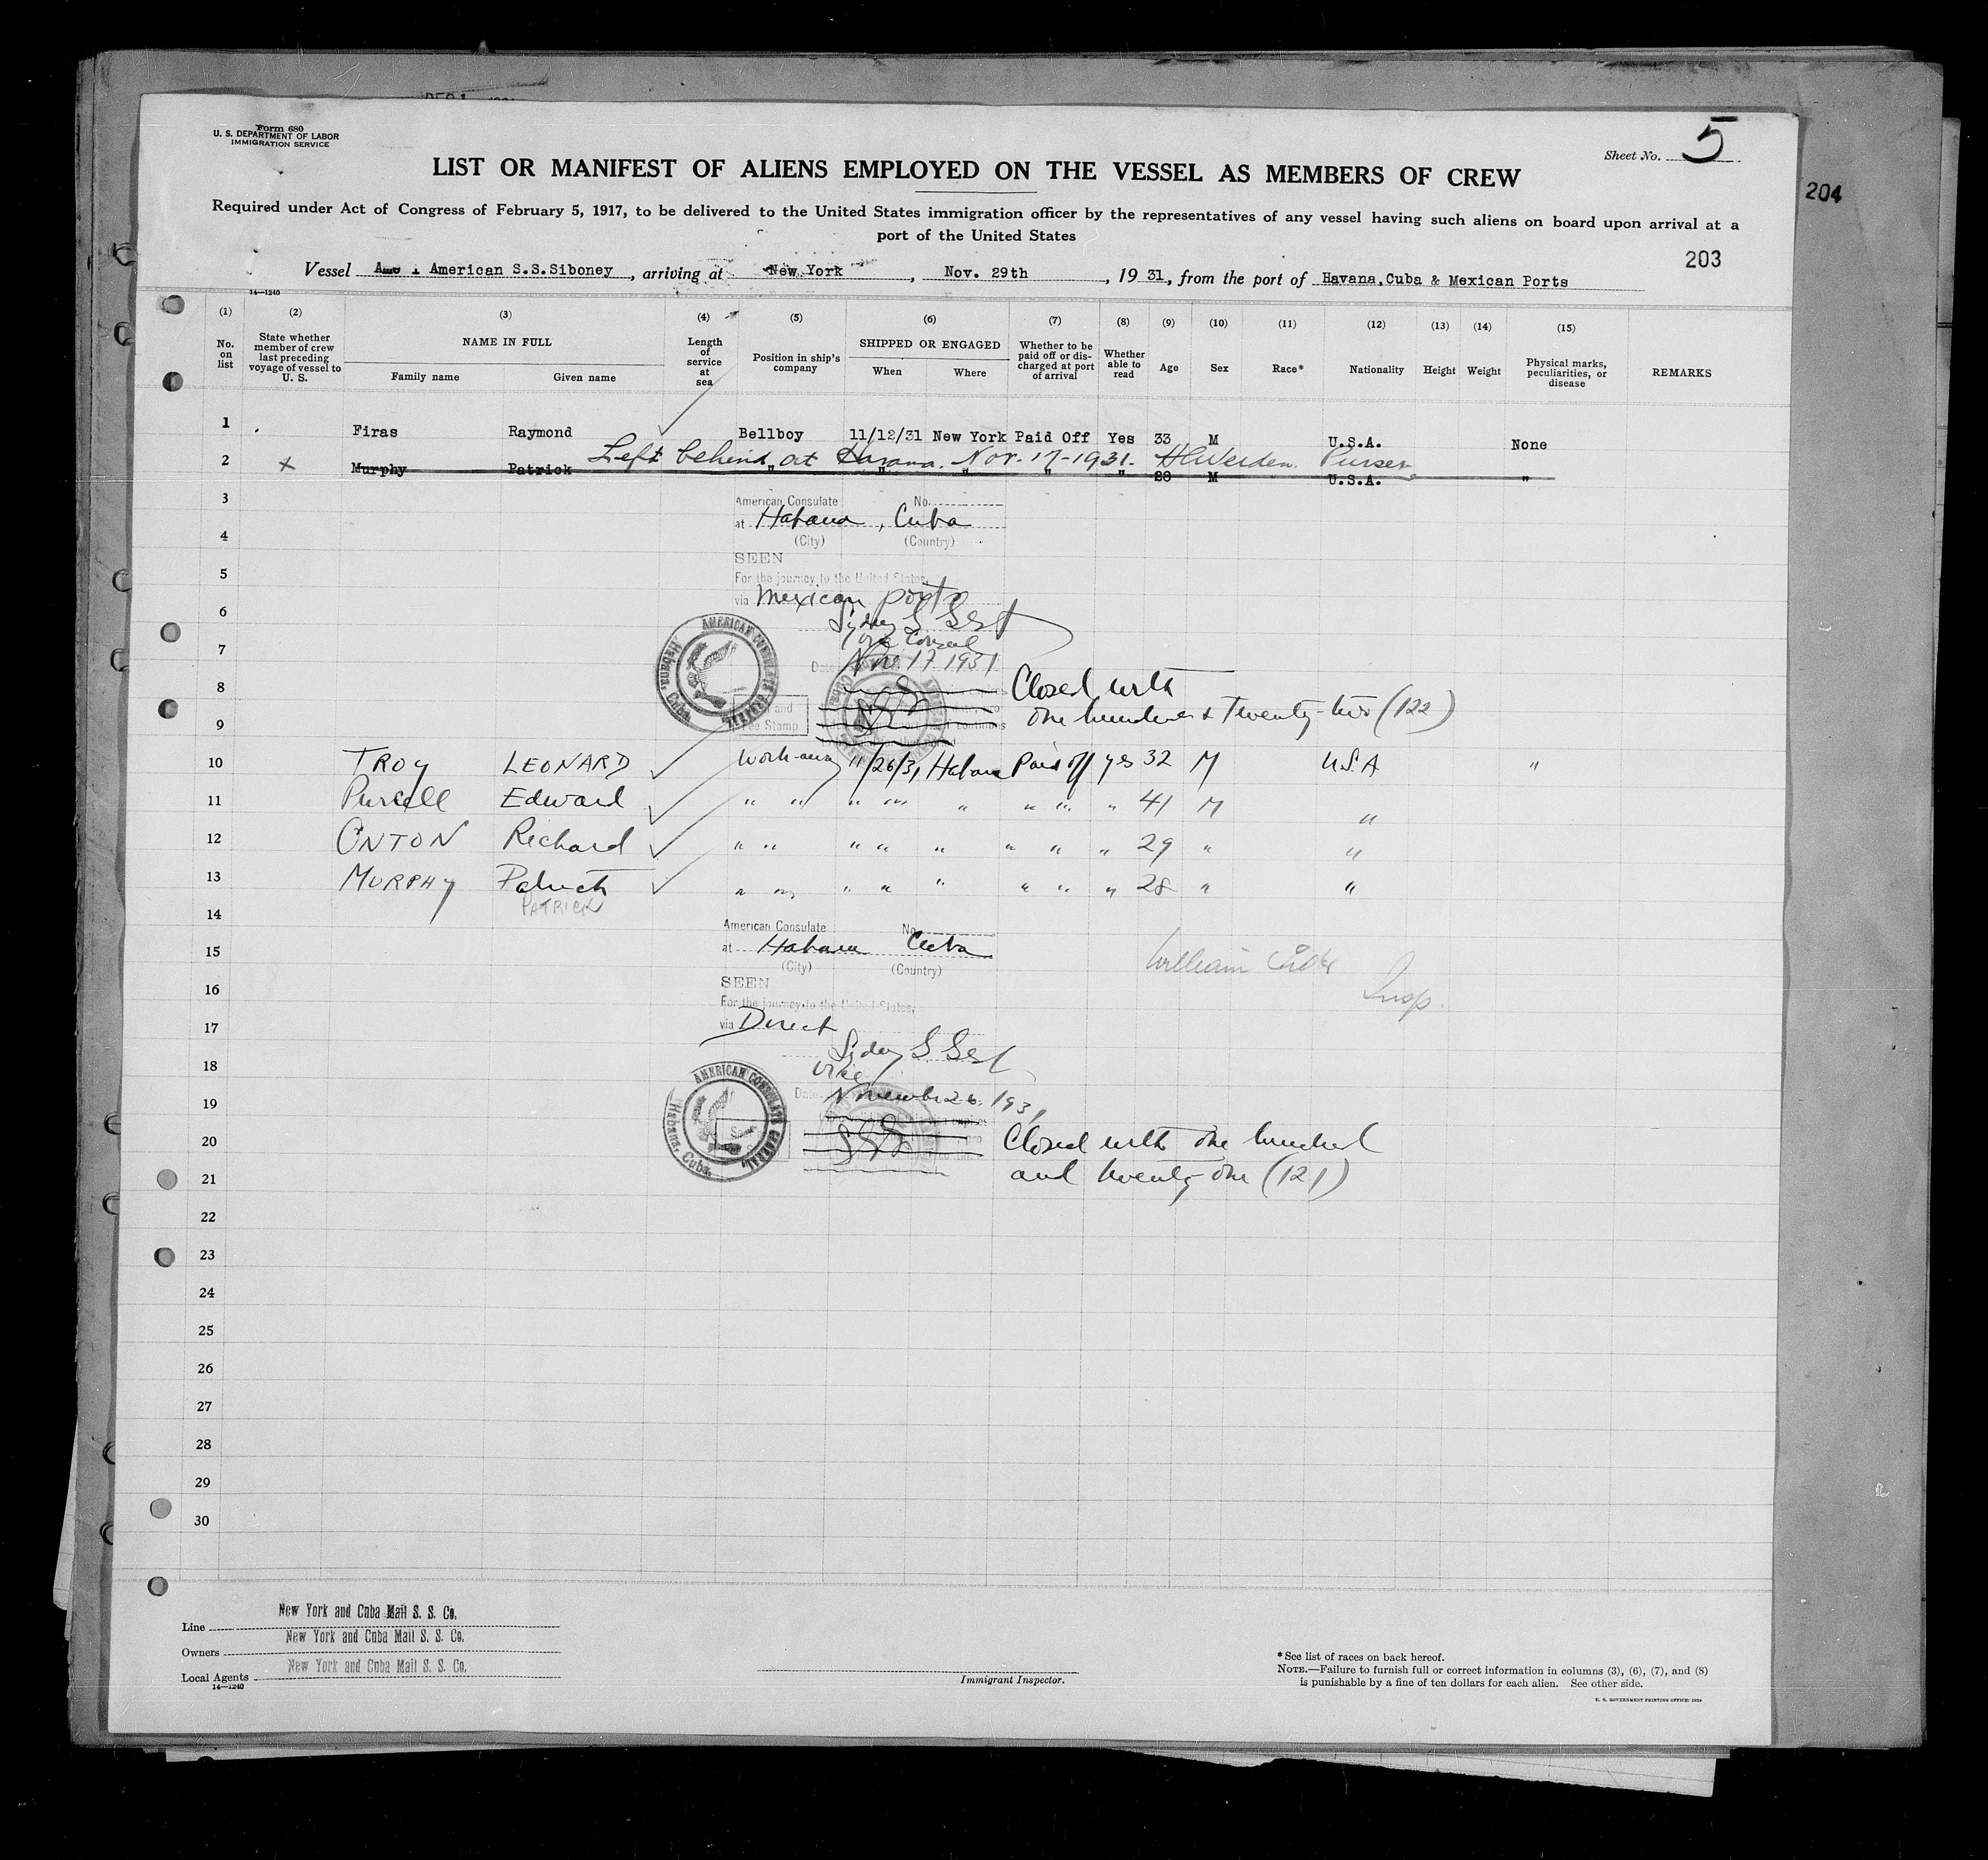 Form 680
U. S. DEPARTMENT OF LABOR
IMMIGRATION SERVICE
Sheet No. 5
LIST OR MANIFEST OF ALIENS EMPLOYED ON THE VESSEL AS MEMBERS OF CREW
204
Required under Act of Congress of February 5, 1917, to be delivered to the United States immigration officer by the representatives of any vessel having such aliens on board upon arrival at a
port of the United States
203
Vessel American S.S.Siboney, arriving at New York, Nov. 29th, 1931, from the port of Havana,Cuba & Mexican Ports
14—1240
(1) (2) (3) (4) (5) (6) (7) (8) (9) (10) (11) (12) (13) (14) (15)
No. on list
State whether member of crew last preceding voyage of vessel to U. S.
NAME IN FULL
Family name
Given name
Length of service at sea
Position in ship's company
SHIPPED OR ENGAGED
When
Where
Whether to be paid off or discharged at port of arrival
Whether able to read
Age
Sex
Race*
Nationality
Height
Weight
Physical marks, peculiarities, or disease
REMARKS
1 Firas Raymond Bellboy 11/12/31 New York Paid Off Yes 33 M U.S.A. None
Left behind at Havana. Nov. 17-1931. Purser
2 x Murphy Patrick " " " " " 28 M U.S.A. "
3
American Consulate No.
at Habana, Cuba
4
(City) (Country)
SEEN
5
For the journey to the United States,
via Mexican ports
6
7
Vice Consul
Date Nov 17 1931
AMERICAN CONSULATE GENERAL
Habana, Cuba
8 Closed with
9 one hundred & twenty-two (122)
Fee Stamp
10 TROY LEONARD Work-away 11/26/31 Habana Paid off yes 32 M U.S.A "
11 Pursell Edward " " " " " " " " 41 M "
12 ONTON Richard " " " " " " " " 29 " "
13 MURPHY Patrick " " " " " " " " 28 " "
PATRICK
14
American Consulate No.
15
at Habana Cuba
(City) (Country)
William
16
SEEN
Insp.
For the journey to the United States,
17
via Direct
18
Vice
19
Date November 26, 1931
AMERICAN CONSULATE GENERAL
Habana, Cuba
20 Closed with one hundred
21 and twenty-one (121)
22
23
24
25
26
27
28
29
30
Line New York and Cuba Mail S. S. Co.
Owners New York and Cuba Mail S. S. Co.
Local Agents New York and Cuba Mail S. S. Co.
14—1240
Immigrant Inspector.
*See list of races on back hereof.
NOTE.—Failure to furnish full or correct information in columns (3), (6), (7), and (8)
is punishable by a fine of ten dollars for each alien. See other side.
U. S. GOVERNMENT PRINTING OFFICE: 1929